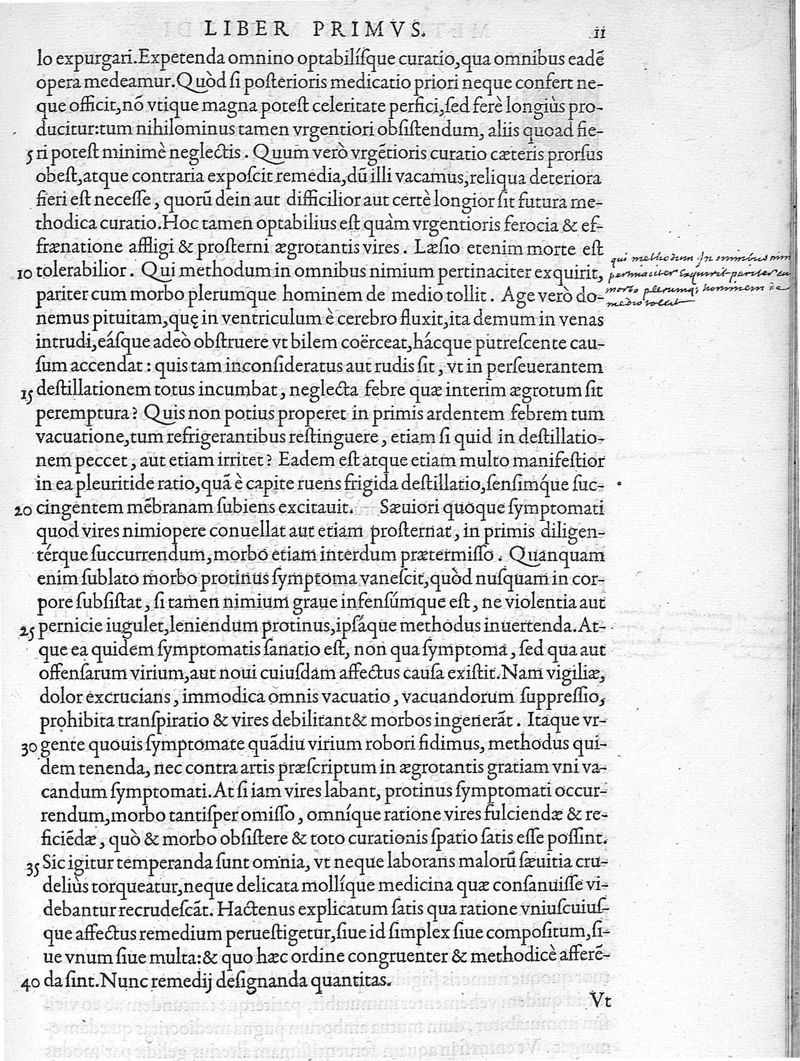 LIBER PRIMVS. ii
lo expurgari.Expetenda omnino optabilísque curatio,qua omnibus eadē
opera medeamur.Quòd si posterioris medicatio priori neque confert ne-
que officit,nō vtique magna potest celeritate perfici,sed ferè longiùs pro-
ducitur:tum nihilominus tamen vrgentiori obsistendum, aliis quoad fie-
5 ri potest minimè neglectis. Quum verò vrgētioris curatio cæteris prorsus
obest,atque contraria exposcit remedia,dū illi vacamus,reliqua deteriora
fieri est necesse, quorū dein aut difficilior aut certè longior sit futura me-
thodica curatio.Hoc tamen optabilius est quàm vrgentioris ferocia & ef-
frænatione affligi & prosterni ægrotantis vires. Læsio etenim morte est
10 tolerabilior. Qui methodum in omnibus nimium pertinaciter exquirit,
pariter cum morbo plerumque hominem de medio tollit. Age verò do-
nemus pituitam,quę in ventriculum è cerebro fluxit,ita demum in venas
intrudi,eásque adeò obstruere vt bilem coërceat,hácque putrescente cau-
sum accendat: quis tam inconsideratus aut rudis sit, vt in perseuerantem
15 destillationem totus incumbat, neglecta febre quæ interim ægrotum sit
peremptura? Quis non potius properet in primis ardentem febrem tum
vacuatione,tum refrigerantibus restinguere, etiam si quid in destillatio-
nem peccet, aut etiam irritet? Eadem est atque etiam multo manifestior
in ea pleuritide ratio,quā è capite ruens frigida destillatio,sensimque suc-
20 cingentem mēbranam subiens excitauit. Sæuiori quoque symptomati
quod vires nimiopere conuellat aut etiam prosternat, in primis diligen-
térque succurrendum,morbo etiam interdum prætermisso. Quanquam
enim sublato morbo protinus symptoma vanescit,quòd nusquam in cor-
pore subsistat, si tamen nimium graue infensúmque est, ne violentia aut
25 pernicie iugulet,leniendum protinus,ipsáque methodus inuertenda.At-
que ea quidem symptomatis sanatio est, non qua symptoma, sed qua aut
offensarum virium,aut noui cuiusdam affectus causa existit.Nam vigiliæ,
dolor excrucians, immodica omnis vacuatio, vacuandorum suppressio,
prohibita transpiratio & vires debilitant& morbos ingenerāt. Itaque vr-
30 gente quouis symptomate quādiu virium robori fidimus, methodus qui-
dem tenenda, nec contra artis præscriptum in ægrotantis gratiam vni va-
candum symptomati.At si iam vires labant, protinus symptomati occur-
rendum,morbo tantisper omisso, omníque ratione vires fulciendæ & re-
ficiēdæ, quò & morbo obsistere & toto curationis spatio satis esse possint.
35 Sic igitur temperanda sunt omnia, vt neque laborans malorū sæuitia cru-
deliùs torqueatur,neque delicata mollíque medicina quæ consanuisse vi-
debantur recrudescāt. Hactenus explicatum satis qua ratione vniuscuius-
que affectus remedium peruestigetur,siue id simplex siue compositum,si-
ue vnum siue multa:& quo hæc ordine congruenter & methodicè afferē-
40 da sint.Nunc remedij designanda quantitas.
Vt
qui methodum In omnibus nim
pertinaciter exquirit pariter cu
morbo plerumq; hominem de
medio tollit